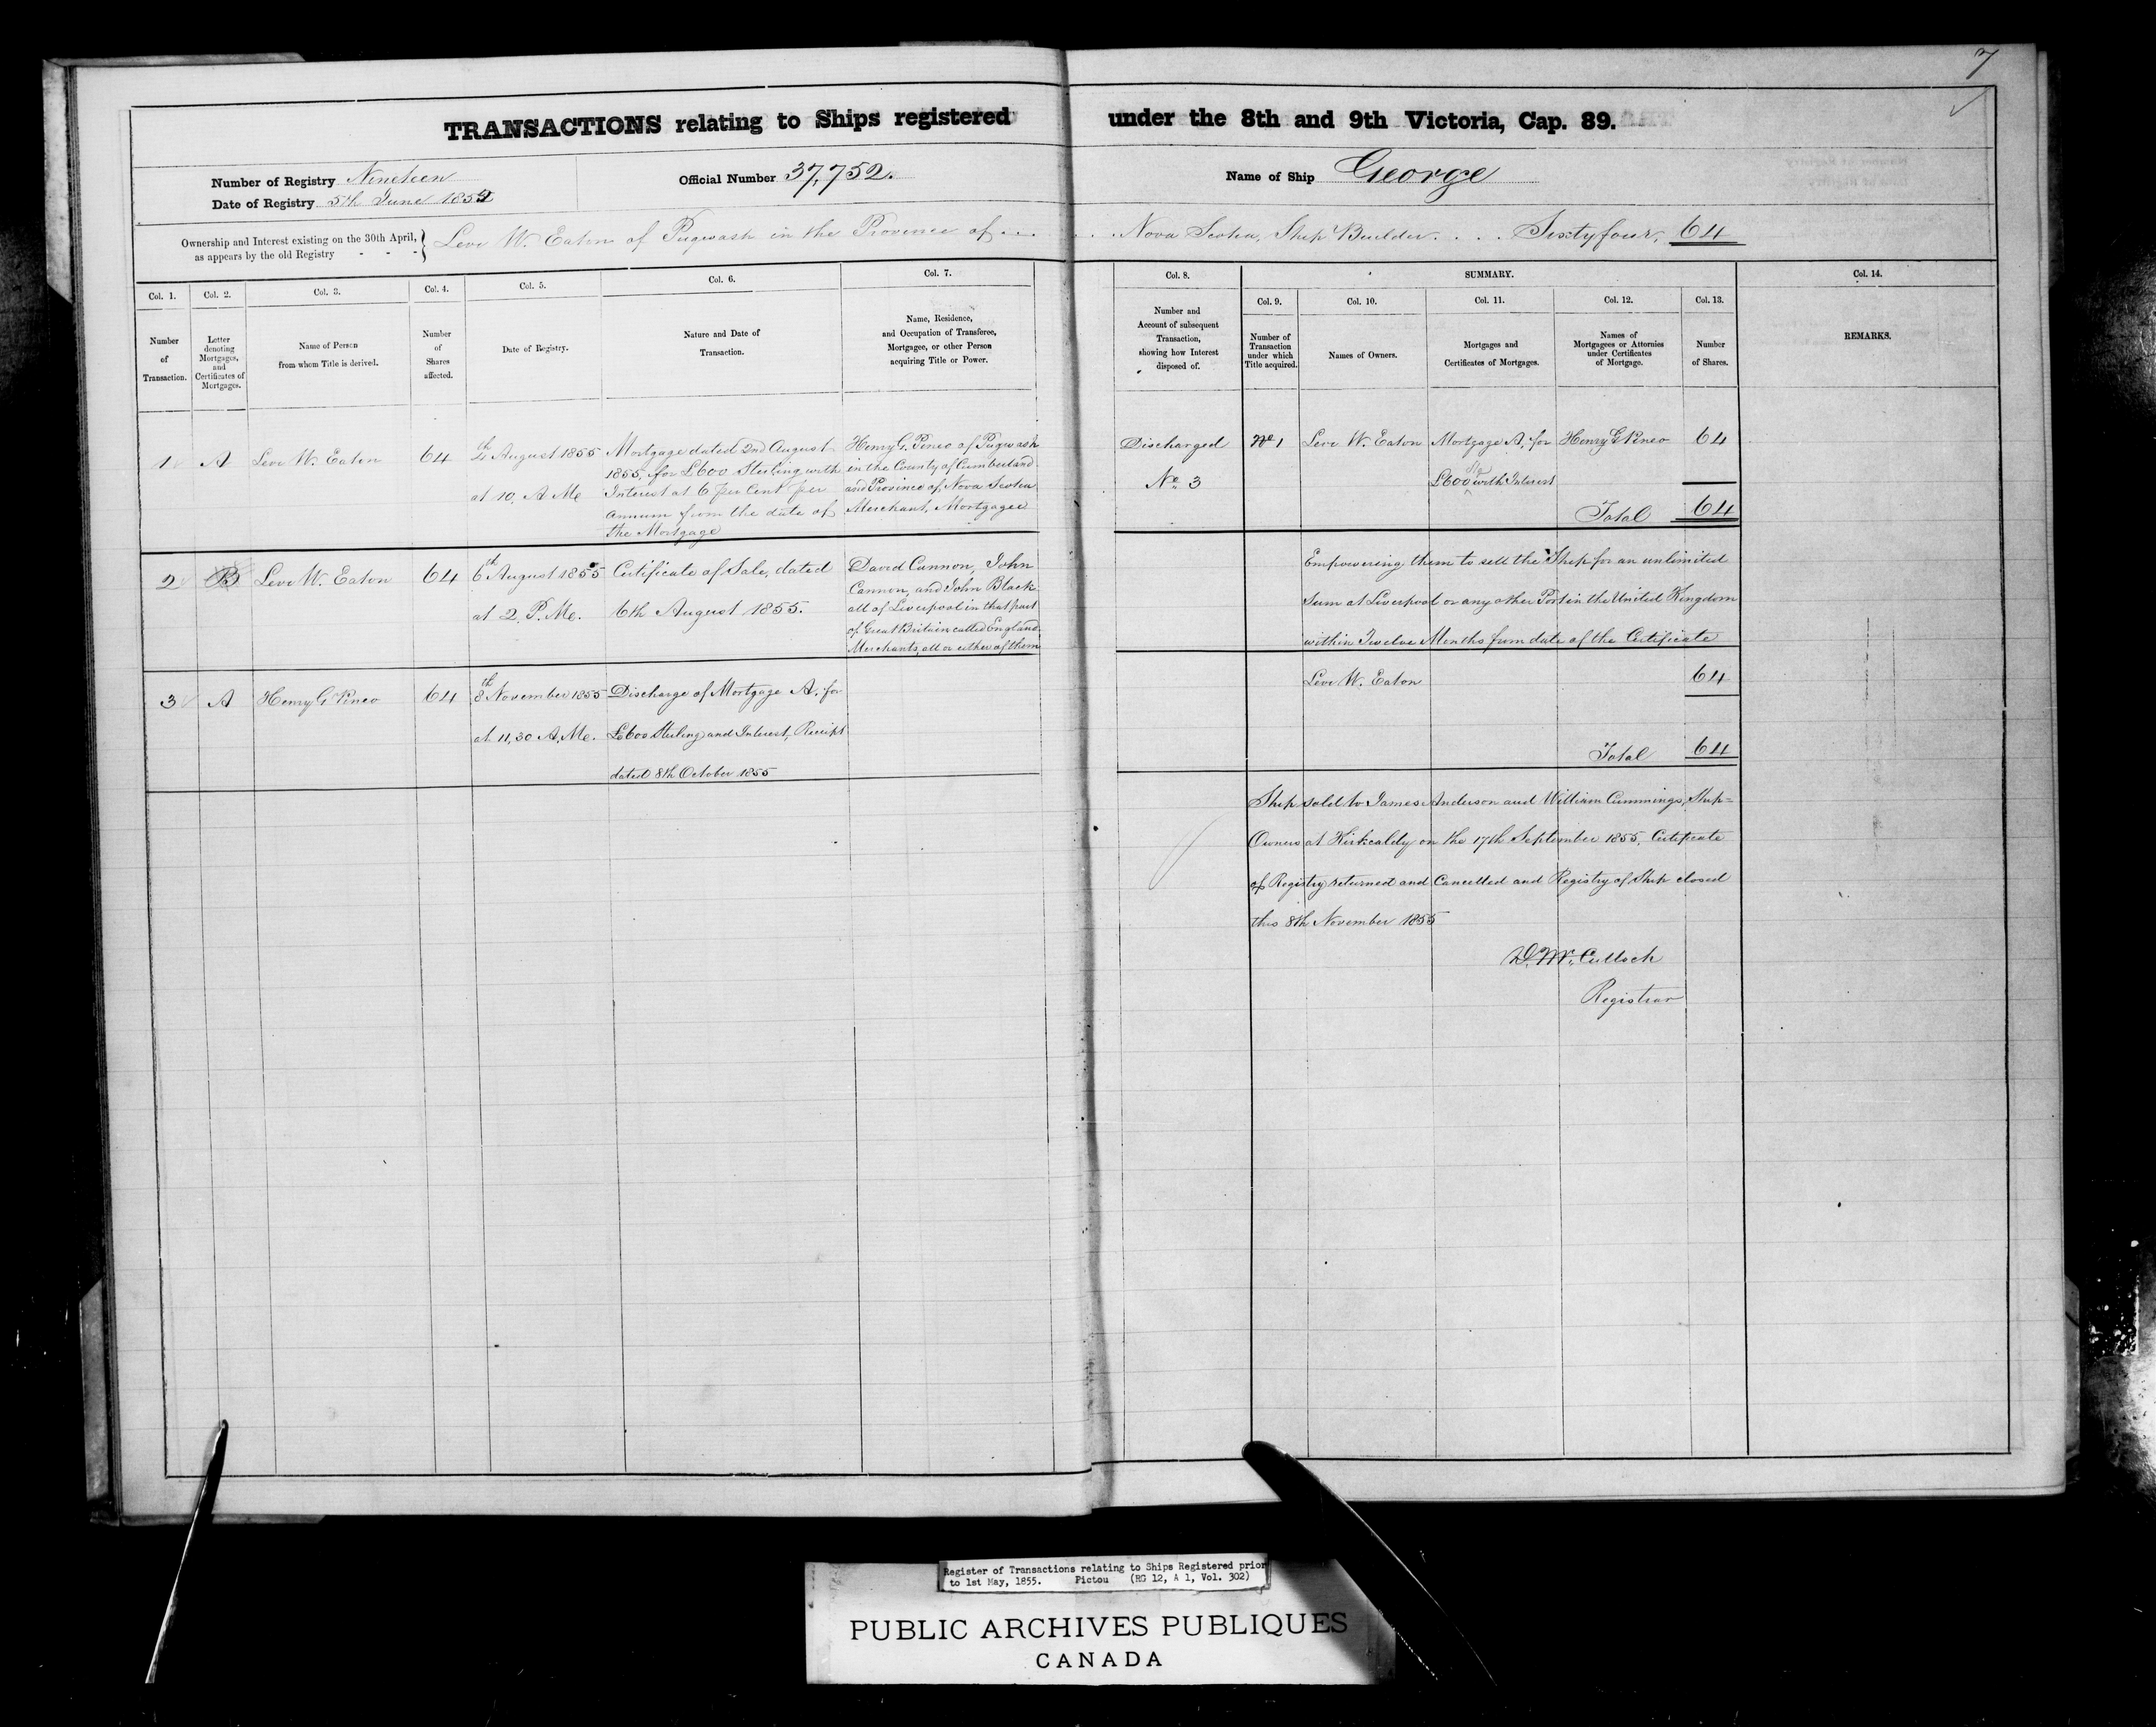 7
TRANSACTIONS relating to Ships registered under the 8th and 9th Victoria, Cap. 89.
Number of Registry Nineteen
Date of Registry 5th June 1854
Official Number 37,752.
Name of Ship George
Ownership and Interest existing on the 30th April, as appears by the old Registry - - -
Levi W. Eaton of Pugwash in the Province of . . . . . . Nova Scotia, Ship Builder. . . . Sixtyfour, 64
Col. 1.
Number
of
Transaction.
Col. 2.
Letter
denoting
Mortgages,
and
Certificates of
Mortgages.
Col. 3.
Name of Person
from whom Title is derived.
Col. 4.
Number
of
Shares
affected.
Col. 5.
Date of Registry.
Col. 6.
Nature and Date of
Transaction.
Col. 7.
Name, Residence,
and Occupation of Transferee,
Mortgagee, or other Person
acquiring Title or Power.
Col. 8.
Number and
Account of subsequent
Transaction,
showing how Interest
disposed of.
SUMMARY.
Col. 9.
Number of
Transaction
under which
Title acquired.
Col. 10.
Names of Owners.
Col. 11.
Mortgages and
Certificates of Mortgages.
Col. 12.
Names of
Mortgagees or Attornies
under Certificates
of Mortgage.
Col. 13.
Number
of Shares.
Col. 14.
REMARKS.
1
A
Levi W. Eaton
64
4th August 1855
at 10, A Me
Mortgage dated 2nd August
1855, for £600 Sterling with
Interest at 6 per Cent per
Annum from the date of
the Mortgage
Henry G. Pineo of Pugwash
in the County of Cumberland
and Province of, Nova Scotia
Merchant, Mortgagee
Discharged
No. 3
No. 1
Levi W. Eaton
Mortgage A, for
£600 Stg with Interest
Henry G Pineo
64
Total 64
2
B
Levi W. Eaton
64
6th August 1855
at 2, P. Me.
Certificate of Sale, dated
6th August 1855.
David Cannon, John
Cannon, and John Black
all of Liverpool in that part
of Great Britain called England,
Merchants, all or either of them
Empowering them to sell the Ship for an unlimited
Sum at Liverpool or any other Port in the United Kingdom
within Twelve Months from date of the Certificate
3
A
Henry G Pineo
64
8th November 1855
at 11,30 A, Me.
Discharge of Mortgage A. for
£600 Sterling and Interest, Receipt
dated 8th October 1855
Levi W. Eaton
64
Total 64
Ship sold to James Anderson and William Cummings, Ship=
Owners at Kirkcaldy on the 17th September 1855, Certificate
of Registry returned and Cancelled and Registry of Ship closed
this 8th November 1855
D. Mc. Culloch
Registrar
Register of Transactions relating to Ships Registered prior
to 1st May, 1855. Pictou (RG 12, A 1, Vol. 302)
PUBLIC ARCHIVES PUBLIQUES
CANADA